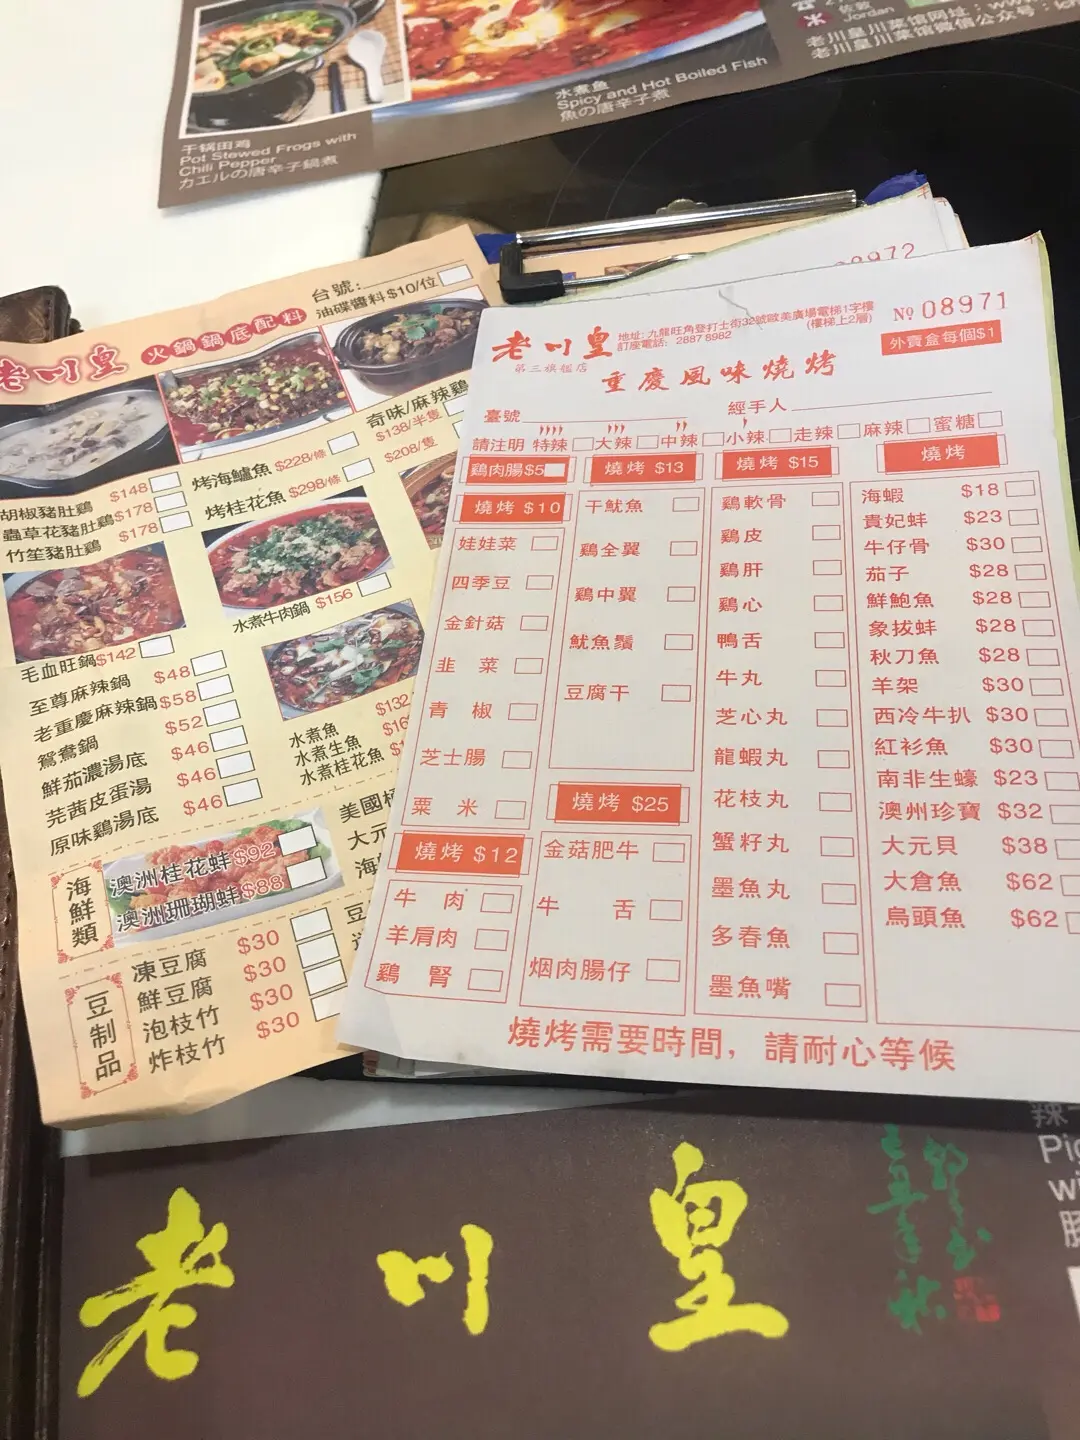 干锅田鸡
Pot Stewed Frogs with
Chili Pepper
カエルの唐辛子鍋煮
水煮鱼
Spicy and Hot Boiled Fish
魚の唐辛子煮
佐敦
Jordan
老川皇川菜馆网址：www.
老川皇川菜馆微信公众号：lch
台號:
油碟醬料$10/位
老川皇 火鍋鍋底配料
胡椒豬肚鷄 $148
蟲草花豬肚鷄 $178
竹笙豬肚鷄 $178
烤海鱸魚 $228/條
烤桂花魚 $298/條
奇味/麻辣鷄
$138/半隻
$208/隻
毛血旺鍋 $142
水煮牛肉鍋 $156
至尊麻辣鍋 $48
老重慶麻辣鍋 $58
鴛鴦鍋 $52
鮮茄濃湯底 $46
芫茜皮蛋湯 $46
原味鷄湯底 $46
水煮魚 $132
水煮生魚
水煮桂花魚
海鮮類
澳洲桂花蚌 $92
澳洲珊瑚蚌 $88
美國
大元
豆制品
凍豆腐 $30
鮮豆腐 $30
泡枝竹 $30
炸枝竹 $30
08972
№ 08971
老川皇
第三旗艦店
地址: 九龍旺角登打士街32號歐美廣場電梯1字樓
(樓梯上2層)
訂座電話: 2887 8982
外賣盒每個$1
重慶風味燒烤
臺號
經手人
請注明 特辣 大辣 中辣 小辣 走辣 麻辣 蜜糖
鷄肉腸$5
燒烤 $10
娃娃菜
四季豆
金針菇
韭菜
青椒
芝士腸
粟米
燒烤 $12
牛肉
羊肩肉
鷄腎
燒烤 $13
干魷魚
鷄全翼
鷄中翼
魷魚鬚
豆腐干
燒烤 $25
金菇肥牛
牛舌
烟肉腸仔
燒烤 $15
鷄軟骨
鷄皮
鷄肝
鷄心
鴨舌
牛丸
芝心丸
龍蝦丸
花枝丸
蟹籽丸
墨魚丸
多春魚
墨魚嘴
燒烤
海蝦 $18
貴妃蚌 $23
牛仔骨 $30
茄子 $28
鮮鮑魚 $28
象拔蚌 $28
秋刀魚 $28
羊架 $30
西冷牛扒 $30
紅衫魚 $30
南非生蠔 $23
澳州珍寶 $32
大元貝 $38
大倉魚 $62
烏頭魚 $62
燒烤需要時間，請耐心等候
老川皇